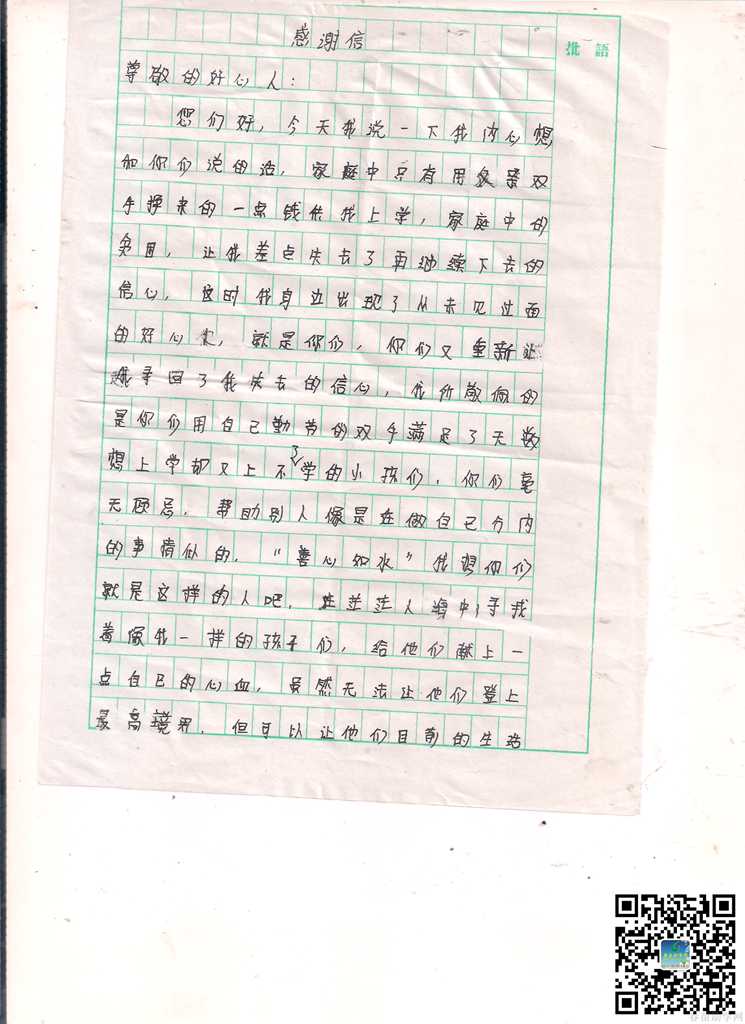 感谢信
批語
尊敬的好心人：
您们好，今天我说一下我内心想
和你们说的话，家庭中只有用父亲双
手挣来的一点钱供我上学，家庭中的
负担，让我差点失去了再继续下去的
信心，这时我身边出现了从未见过面
的好心人，就是你们，你们又重新让
我寻回了我失去的信心，我所敬佩的
是你们用自己勤劳的双手满足了无数
想上学却又上不了学的小孩们，你们毫
无顾忌，帮助别人像是在做自己分内
的事情似的，“善心如水”我想你们
就是这样的人吧，在茫茫人海中，寻找
着像我一样的孩子们，给他们献上一
点自己的心血，虽然无法让他们登上
最高境界，但可以让他们目前的生活